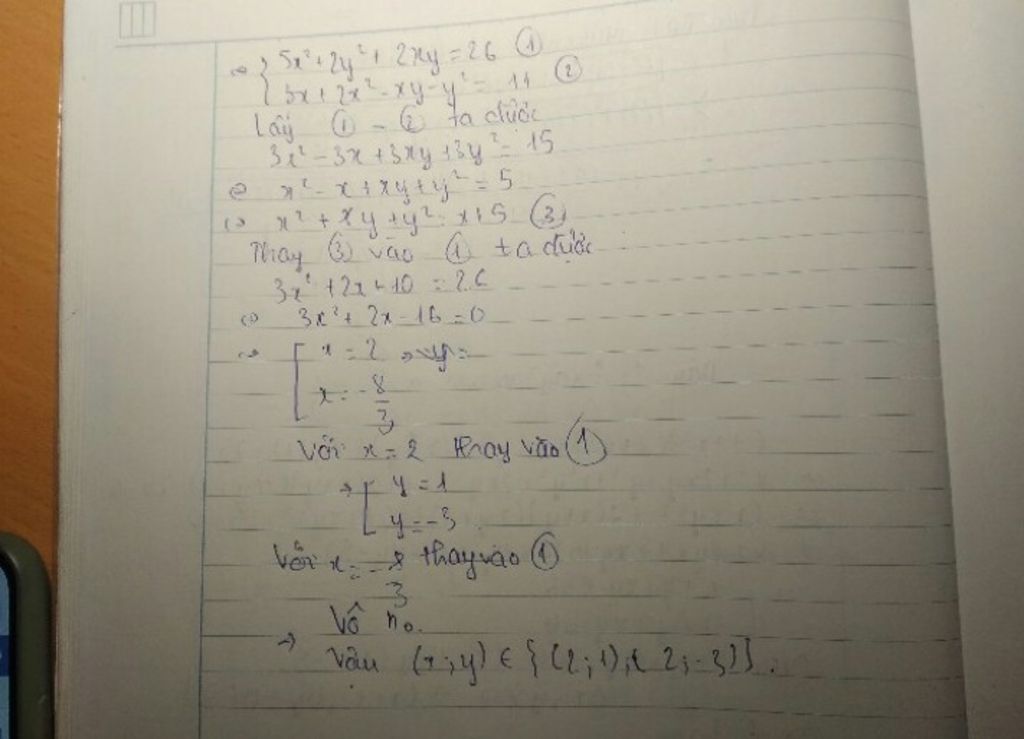 ⇔ { 5x² + 2y² + 2xy = 26 ①
3x + 2x² - xy - y² = 11 ②
Lấy ① - ② ta được
3x² - 3x + 3xy + 3y² = 15
⇔ x² - x + xy + y² = 5
⇔ x² + xy + y² = x + 5 ③
Thay ③ vào ① ta được
3x² + 2x + 10 = 26
⇔ 3x² + 2x - 16 = 0
⇔ [ x = 2
x = -8/3
Với x = 2 thay vào ①
→ [ y = 1
y = -3
Với x = -8/3 thay vào ①
→ Vô n₀.
Vậy (x; y) ∈ {(2; 1), (2; -3)}.